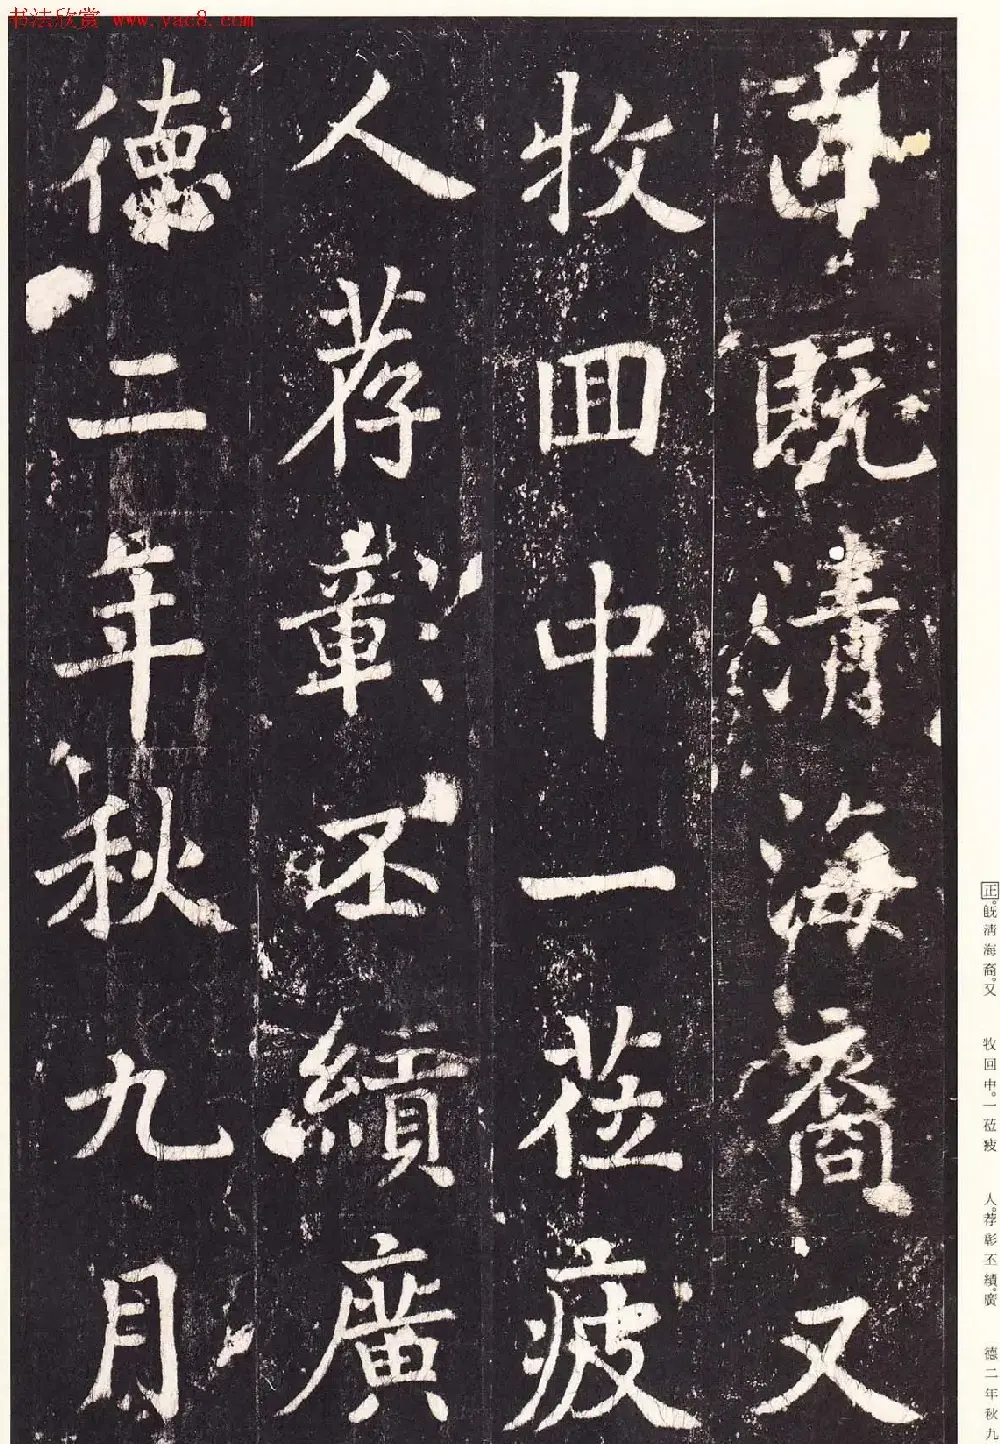 书法欣赏 www.yac8.com
既清海裔又
牧回中一莅疲
人荐彰丕績廣
德二年秋九月
正。既清海裔。又
牧回中。一莅疲
人。荐彰丕績。廣
德二年秋九